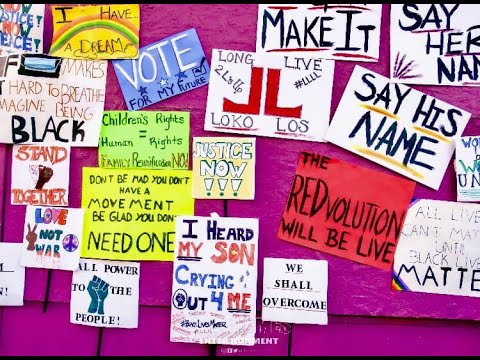 JUSTICE
NOW
I HAVE
A DREAM!
VOTE
FOR MY FUTURE
LONG LIVE
24L4Up
#LLLL
LL
LOKO LOS
MAKE IT
SAY
HER
NAM
MAKES
HARD TO BREATHE
IMAGINE BEING
BLACK
Children's Rights
=
Human Rights
FAMILY Reunification NO!
JUSTICE
NOW!!
!!!
SAY HIS
NAME
STAND
TOGETHER
DON'T BE MAD YOU DON'T
HAVE A
MOVEMENT
BE GLAD YOU DON'T
NEED ONE
THE
REDVOLUTION
WILL BE LIVE
WOM
UNI
LOVE
NOT
WAR
I HEARD
MY SON
CRYING
OUT 4 ME
#BlackLivesMatter
ALL LIVES
CAN'T MAT
UNTIL
BLACK LIVE
MATTE
ALL POWER
TO THE
PEOPLE!
WE
SHALL
OVERCOME
ENTERTAINMENT